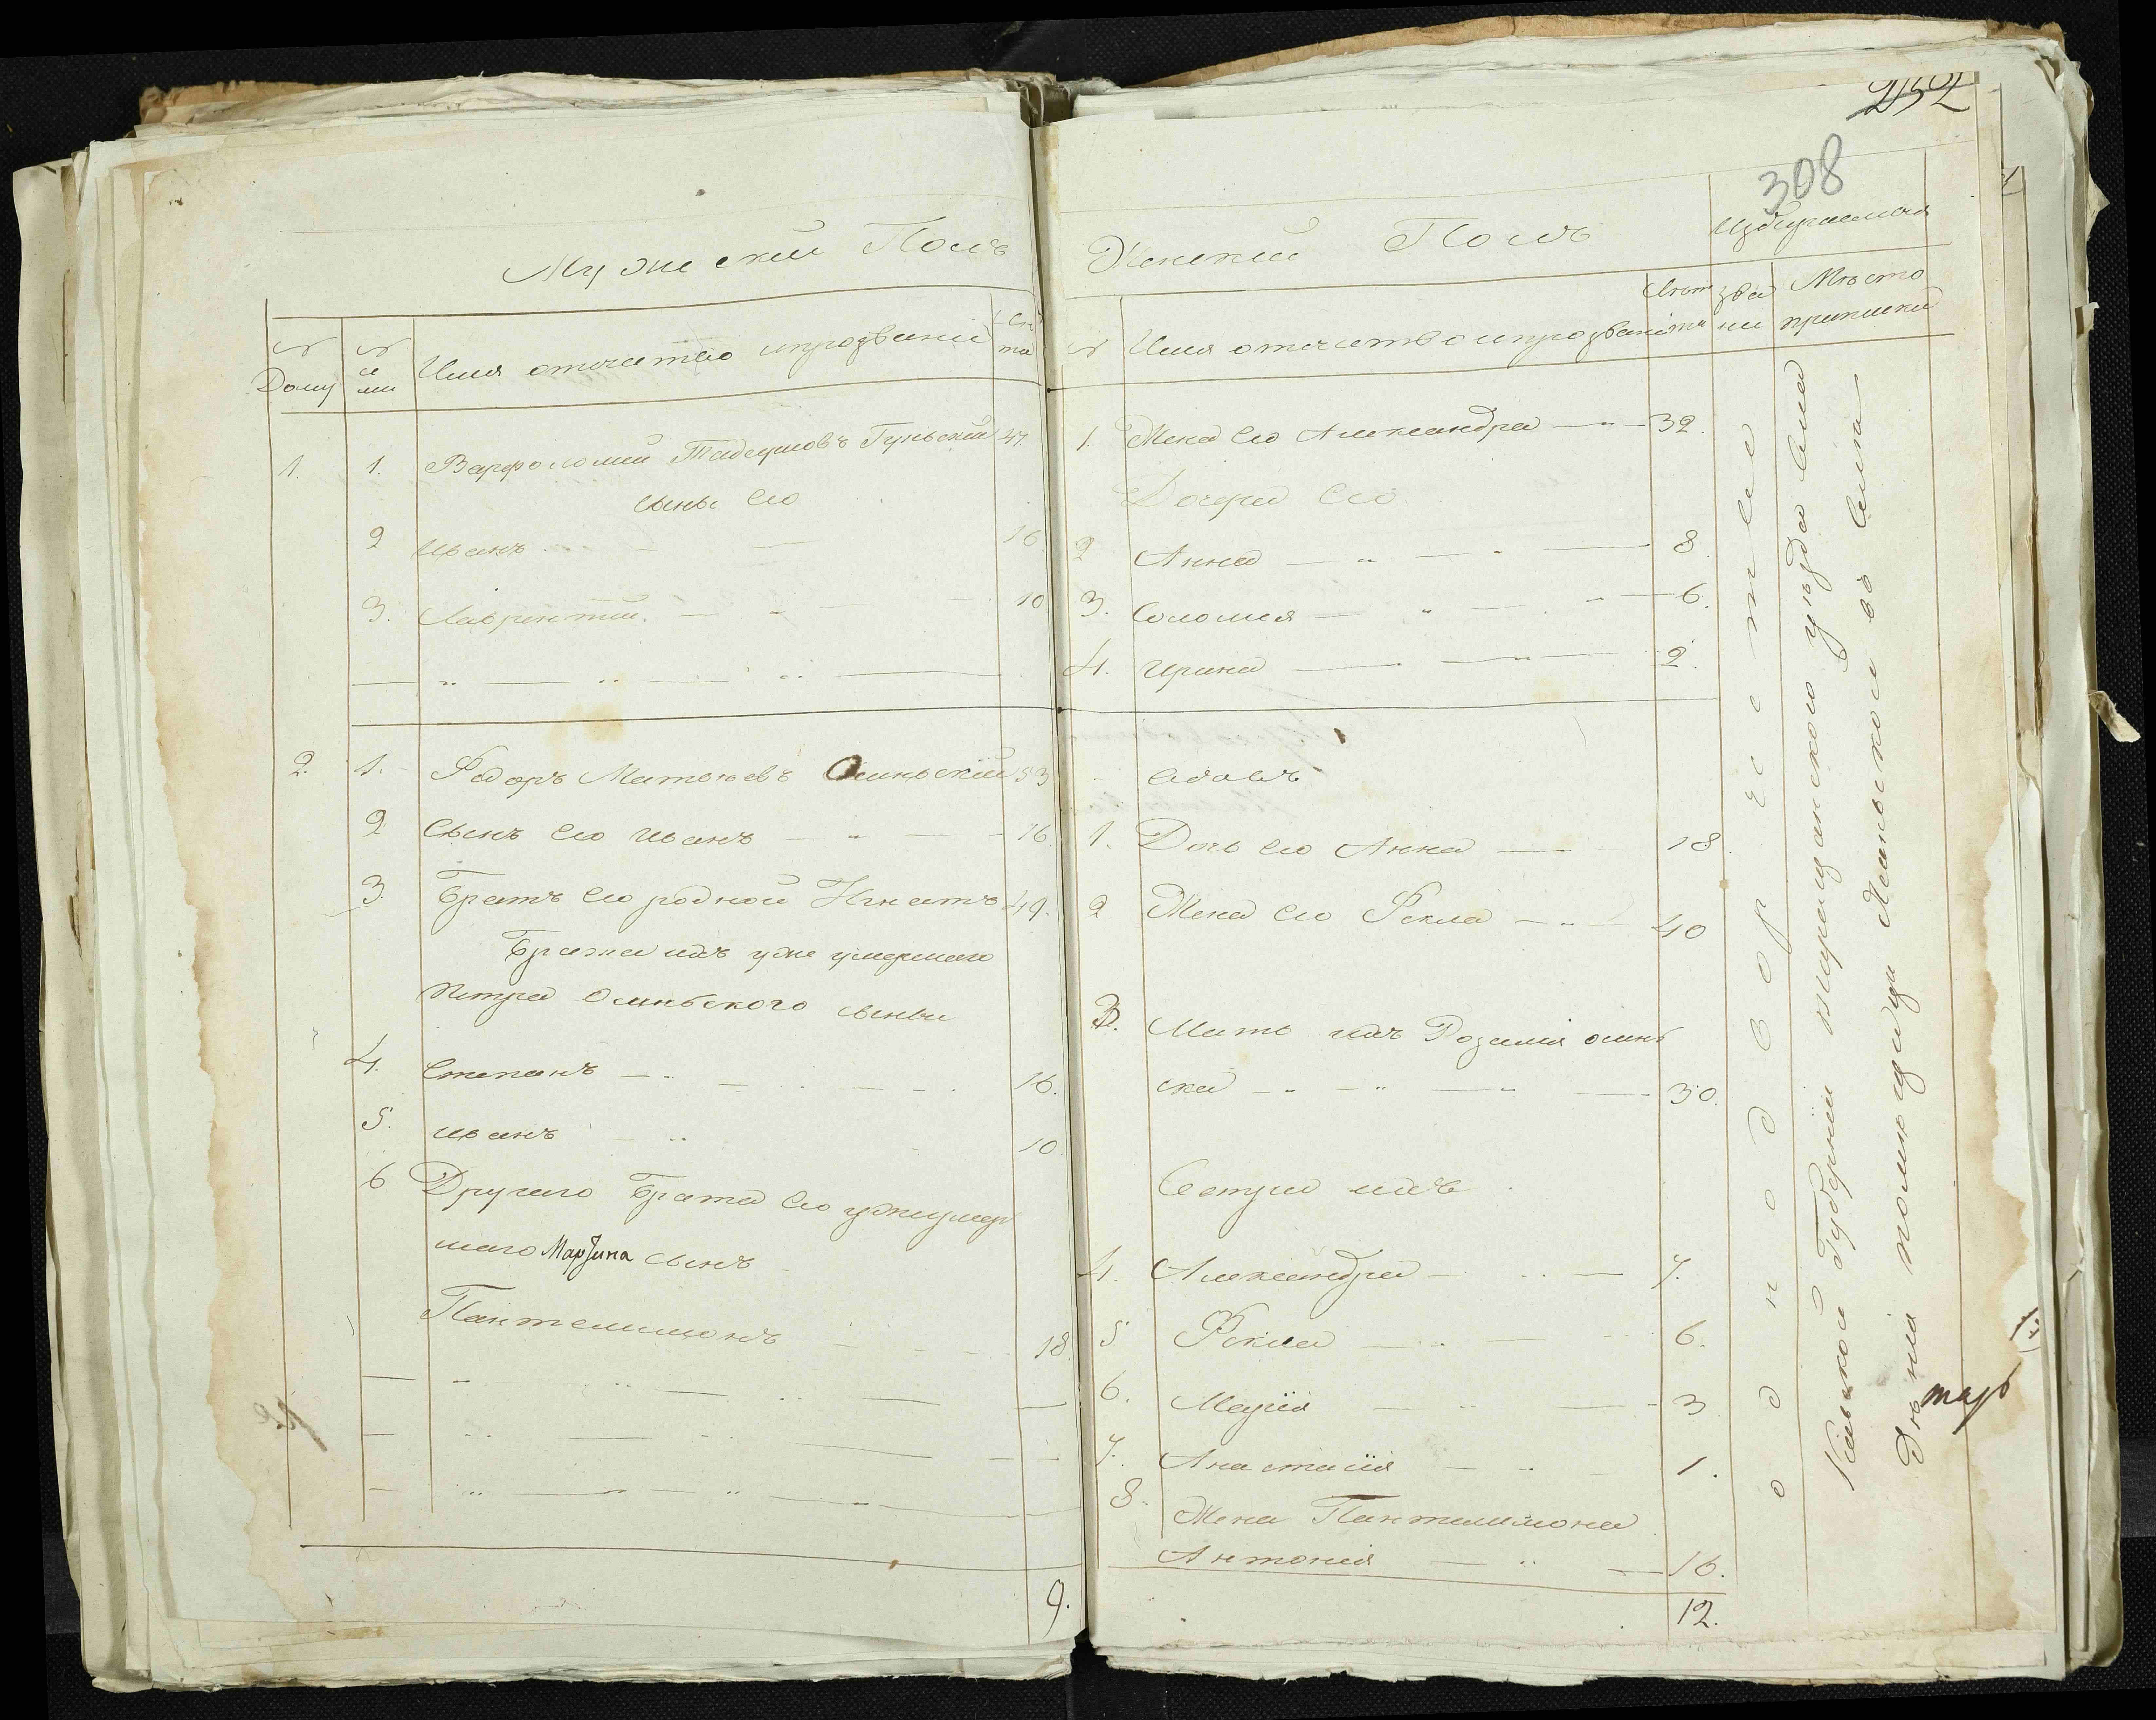 Мужескій Полъ
№ Дому
№ семи
Имя отчество ипрозваніе
Лета
1. 1. Варфоломей Тадеушовъ Гуньскій 47.
сыны Его
2 Иванъ 16.
3. Лаврентій 10
2. 1. Федоръ Матвѣевъ Олиньскій 53
2 Сынъ Его Иванъ 16
3. Братъ Его родной Игнатъ 49.
Брата ихъ уже умершаго
Петра Олиньского сыны
4. Степанъ 16.
5. Иванъ 10.
6 Другаго Брата Его ужеумер
шаго Мартина сынъ
Пантелимонъ 18.
9.
252
308
Женскій Полъ
Избираемыя
№
Имя отечество ипрозваніе
Лета
зва ніи
Мѣсто приписки
1. Жена Его Александра 32.
Дочери Его
2 Анна 8.
3. Соломея 6.
4. Ирина 2.
Вдовъ
1. Дочь Его Анна 18.
2 Жена Его Фекла 40
3. Мать ихъ Розалія олинь
ска 30.
Сестри ихъ
4. Александра 7.
5 Фекла 6.
6. Марія 3.
7. Анастасія 1.
8. Жена Пантелимона
Антонія 16.
12.
однодворческое
Кіевской Губерніи таращанского уѣзда
помещици въ